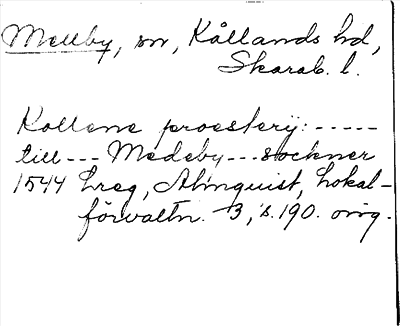 Mellby, sn, Kållands hd,
Skarab. l.
Kollene proesterij: -----
till --- Medeby --- stockner
1544 Lreg, Almquist, Lokal-
förvaltn. 3, s. 190. orig.